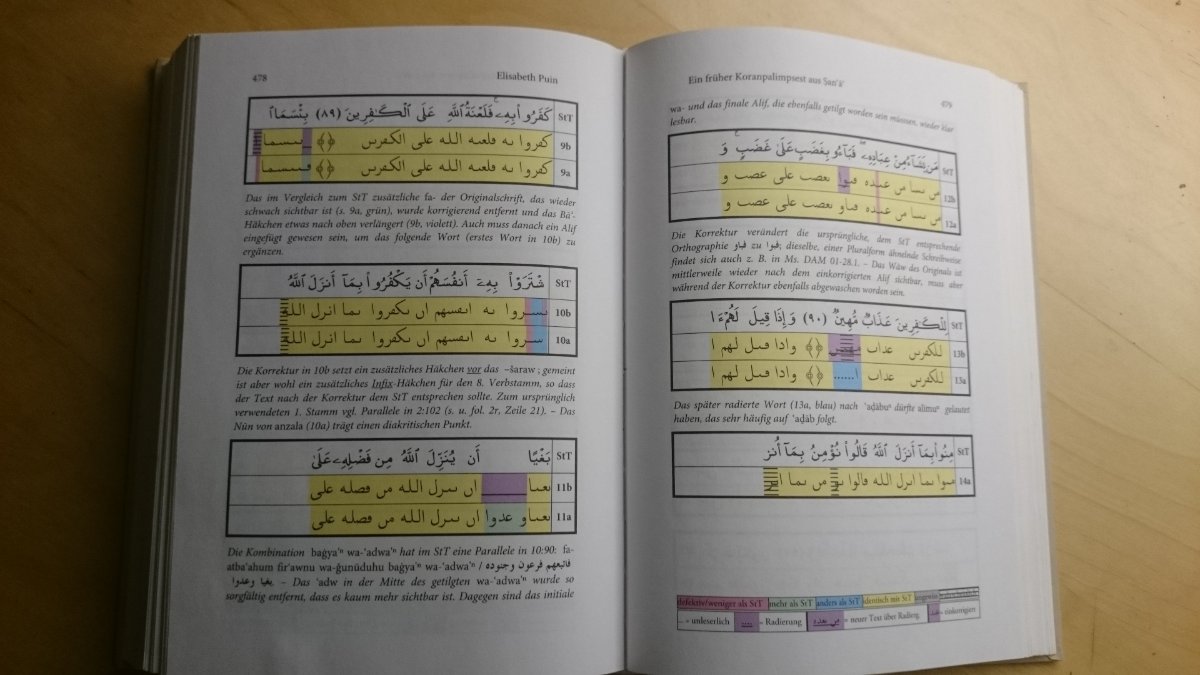 478 Elisabeth Puin
كَفَرُوا۟ بِهِۦ ۚ فَلَعْنَةُ ٱللَّهِ عَلَى ٱلْكَـٰفِرِينَ (٨٩) بِئْسَمَا ٱ StT
كفروا به فلعنه الله على الكفرين 9b
كفروا به فلعنه الله على الكفرين 9a
Das im Vergleich zum StT zusätzliche fa- der Originalschrift, das wieder
schwach sichtbar ist (s. 9a, grün), wurde korrigierend entfernt und das Bā’-
Häkchen etwas nach oben verlängert (9b, violett). Auch muss danach ein Alif
eingefügt gewesen sein, um das folgende Wort (erstes Wort in 10b) zu
ergänzen.
شْتَرَوْا۟ بِهِۦٓ أَنفُسَهُمْ أَن يَكْفُرُوا۟ بِمَآ أَنزَلَ ٱللَّهُ StT
به انفسهم ان يكفروا بما انزل الله 10b
به انفسهم ان يكفروا بما انزل الله 10a
Die Korrektur in 10b setzt ein zusätzliches Häkchen vor das –šaraw ; gemeint
ist aber wohl ein zusätzliches Infix-Häkchen für den 8. Verbstamm, so dass
der Text nach der Korrektur dem StT entsprechen sollte. Zum ursprünglich
verwendeten 1. Stamm vgl. Parallele in 2:102 (s. u. fol. 2r, Zeile 21). – Das
Nūn von anzala (10a) trägt einen diakritischen Punkt.
بَغْيًا أَن يُنَزِّلَ ٱللَّهُ مِن فَضْلِهِۦ عَلَىٰ StT
بعىا ان ىىرل الله من فصله على 11b
بعىا و عدوا ان ىىرل الله من فصله على 11a
Die Kombination baġyaⁿ wa-‘adwaⁿ hat im StT eine Parallele in 10:90: fa-
atba‘ahum fir‘awnu wa-ġunūduhu baġya’ⁿ wa-‘adwaⁿ / فاتبعهم فرعون وجنوده
بغيا وعدوا. – Das ‘adw in der Mitte des getilgten wa-‘adwaⁿ wurde so
sorgfältig entfernt, dass es kaum mehr sichtbar ist. Dagegen sind das initiale
Ein früher Koranpalimpsest aus Ṣan‘ā’ 479
wa- und das finale Alif, die ebenfalls getilgt worden sein müssen, wieder klar
lesbar.
مَن يَشَآءُ مِنْ عِبَادِهِۦ ۖ فَبَآءُو بِغَضَبٍ عَلَىٰ غَضَبٍ ۚ وَ StT
من ىسا من عىده فىوا ىعصب على عصب و 12b
من ىسا من عىده فىاو ىعصب على عصب و 12a
Die Korrektur verändert die ursprüngliche, dem StT entsprechende
Orthographie فباو zu فبوا; dieselbe, einer Pluralform ähnelnde Schreibweise
findet sich auch z. B. in Ms. DAM 01-28.1. – Das Wāw des Originals ist
mittlerweile wieder nach dem einkorrigierten Alif sichtbar, muss aber
während der Korrektur ebenfalls abgewaschen worden sein.
لِلْكَـٰفِرِينَ عَذَابٌ مُّهِينٌ (٩٠) وَإِذَا قِيلَ لَهُمْ ءَا StT
للكفرىں عداب مهىں وادا فىل لهم ا 13b
للكفرىں عداب ا...... وادا فىل لهم ا 13a
Das später radierte Wort (13a, blau) nach ‘aḏābuⁿ dürfte alīmuⁿ gelautet
haben, das sehr häufig auf ‘aḏāb folgt.
مِنُوا۟ بِمَآ أَنزَلَ ٱللَّهُ قَالُوا۟ نُؤْمِنُ بِمَآ أُنزِ StT
مىوا ىما اىرل الله فالوا ىو من ىما اىر 14a
defektiv/weniger als StT mehr als StT anders als StT identisch mit StT ungewiss wahrscheinlich
... = unleserlich = Radierung = neuer Text über Radierg. = einkorrigiert